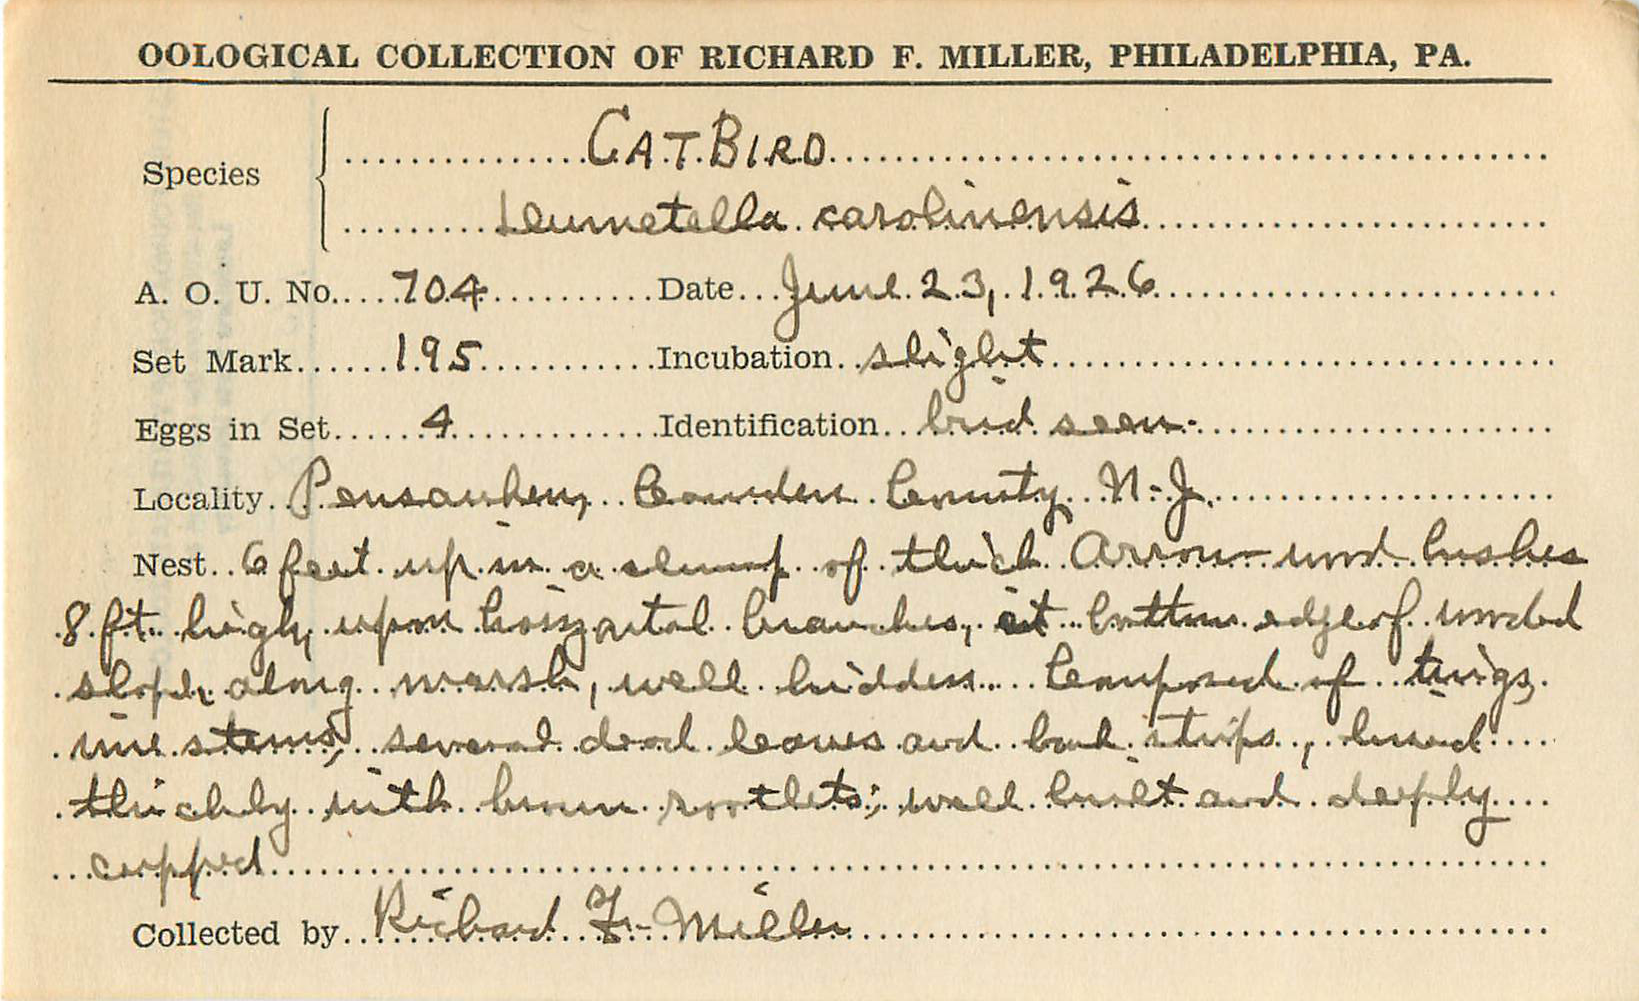 OOLOGICAL COLLECTION OF RICHARD F. MILLER, PHILADELPHIA, PA.
Species
CATBIRD
Dumetella carolinensis
A. O. U. No. 704 Date June 23, 1926
Set Mark 195 Incubation slight
Eggs in Set 4 Identification bird seen.
Locality Pensauken, Camden County N.J.
Nest 6 feet up in a clump of thick Arrow wood bushes
8 ft. high, upon horizontal branches, at bottom edge of wooded
slope along marsh, well hidden. Composed of twigs,
vine stems, several dead leaves and bark strips, lined
thickly with brown rootlets; well built and deeply
cupped
Collected by Richard F. Miller